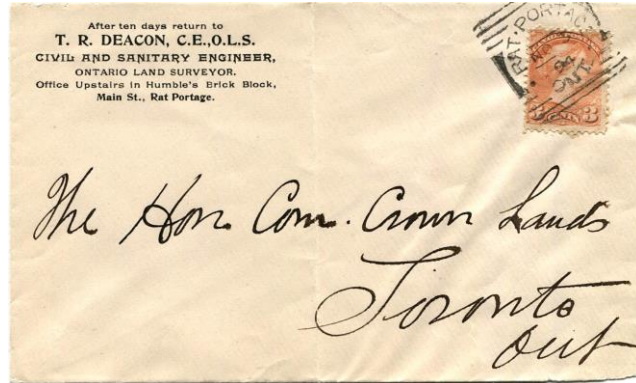 After ten days return to
T. R. DEACON, C.E., O.L.S.
CIVIL AND SANITARY ENGINEER,
ONTARIO LAND SURVEYOR.
Office Upstairs in Humble's Brick Block,
Main St., Rat Portage.
RAT·PORTAGE
94
ONT
3 3
The Hon Com. Crown Lands
Toronto
Ont